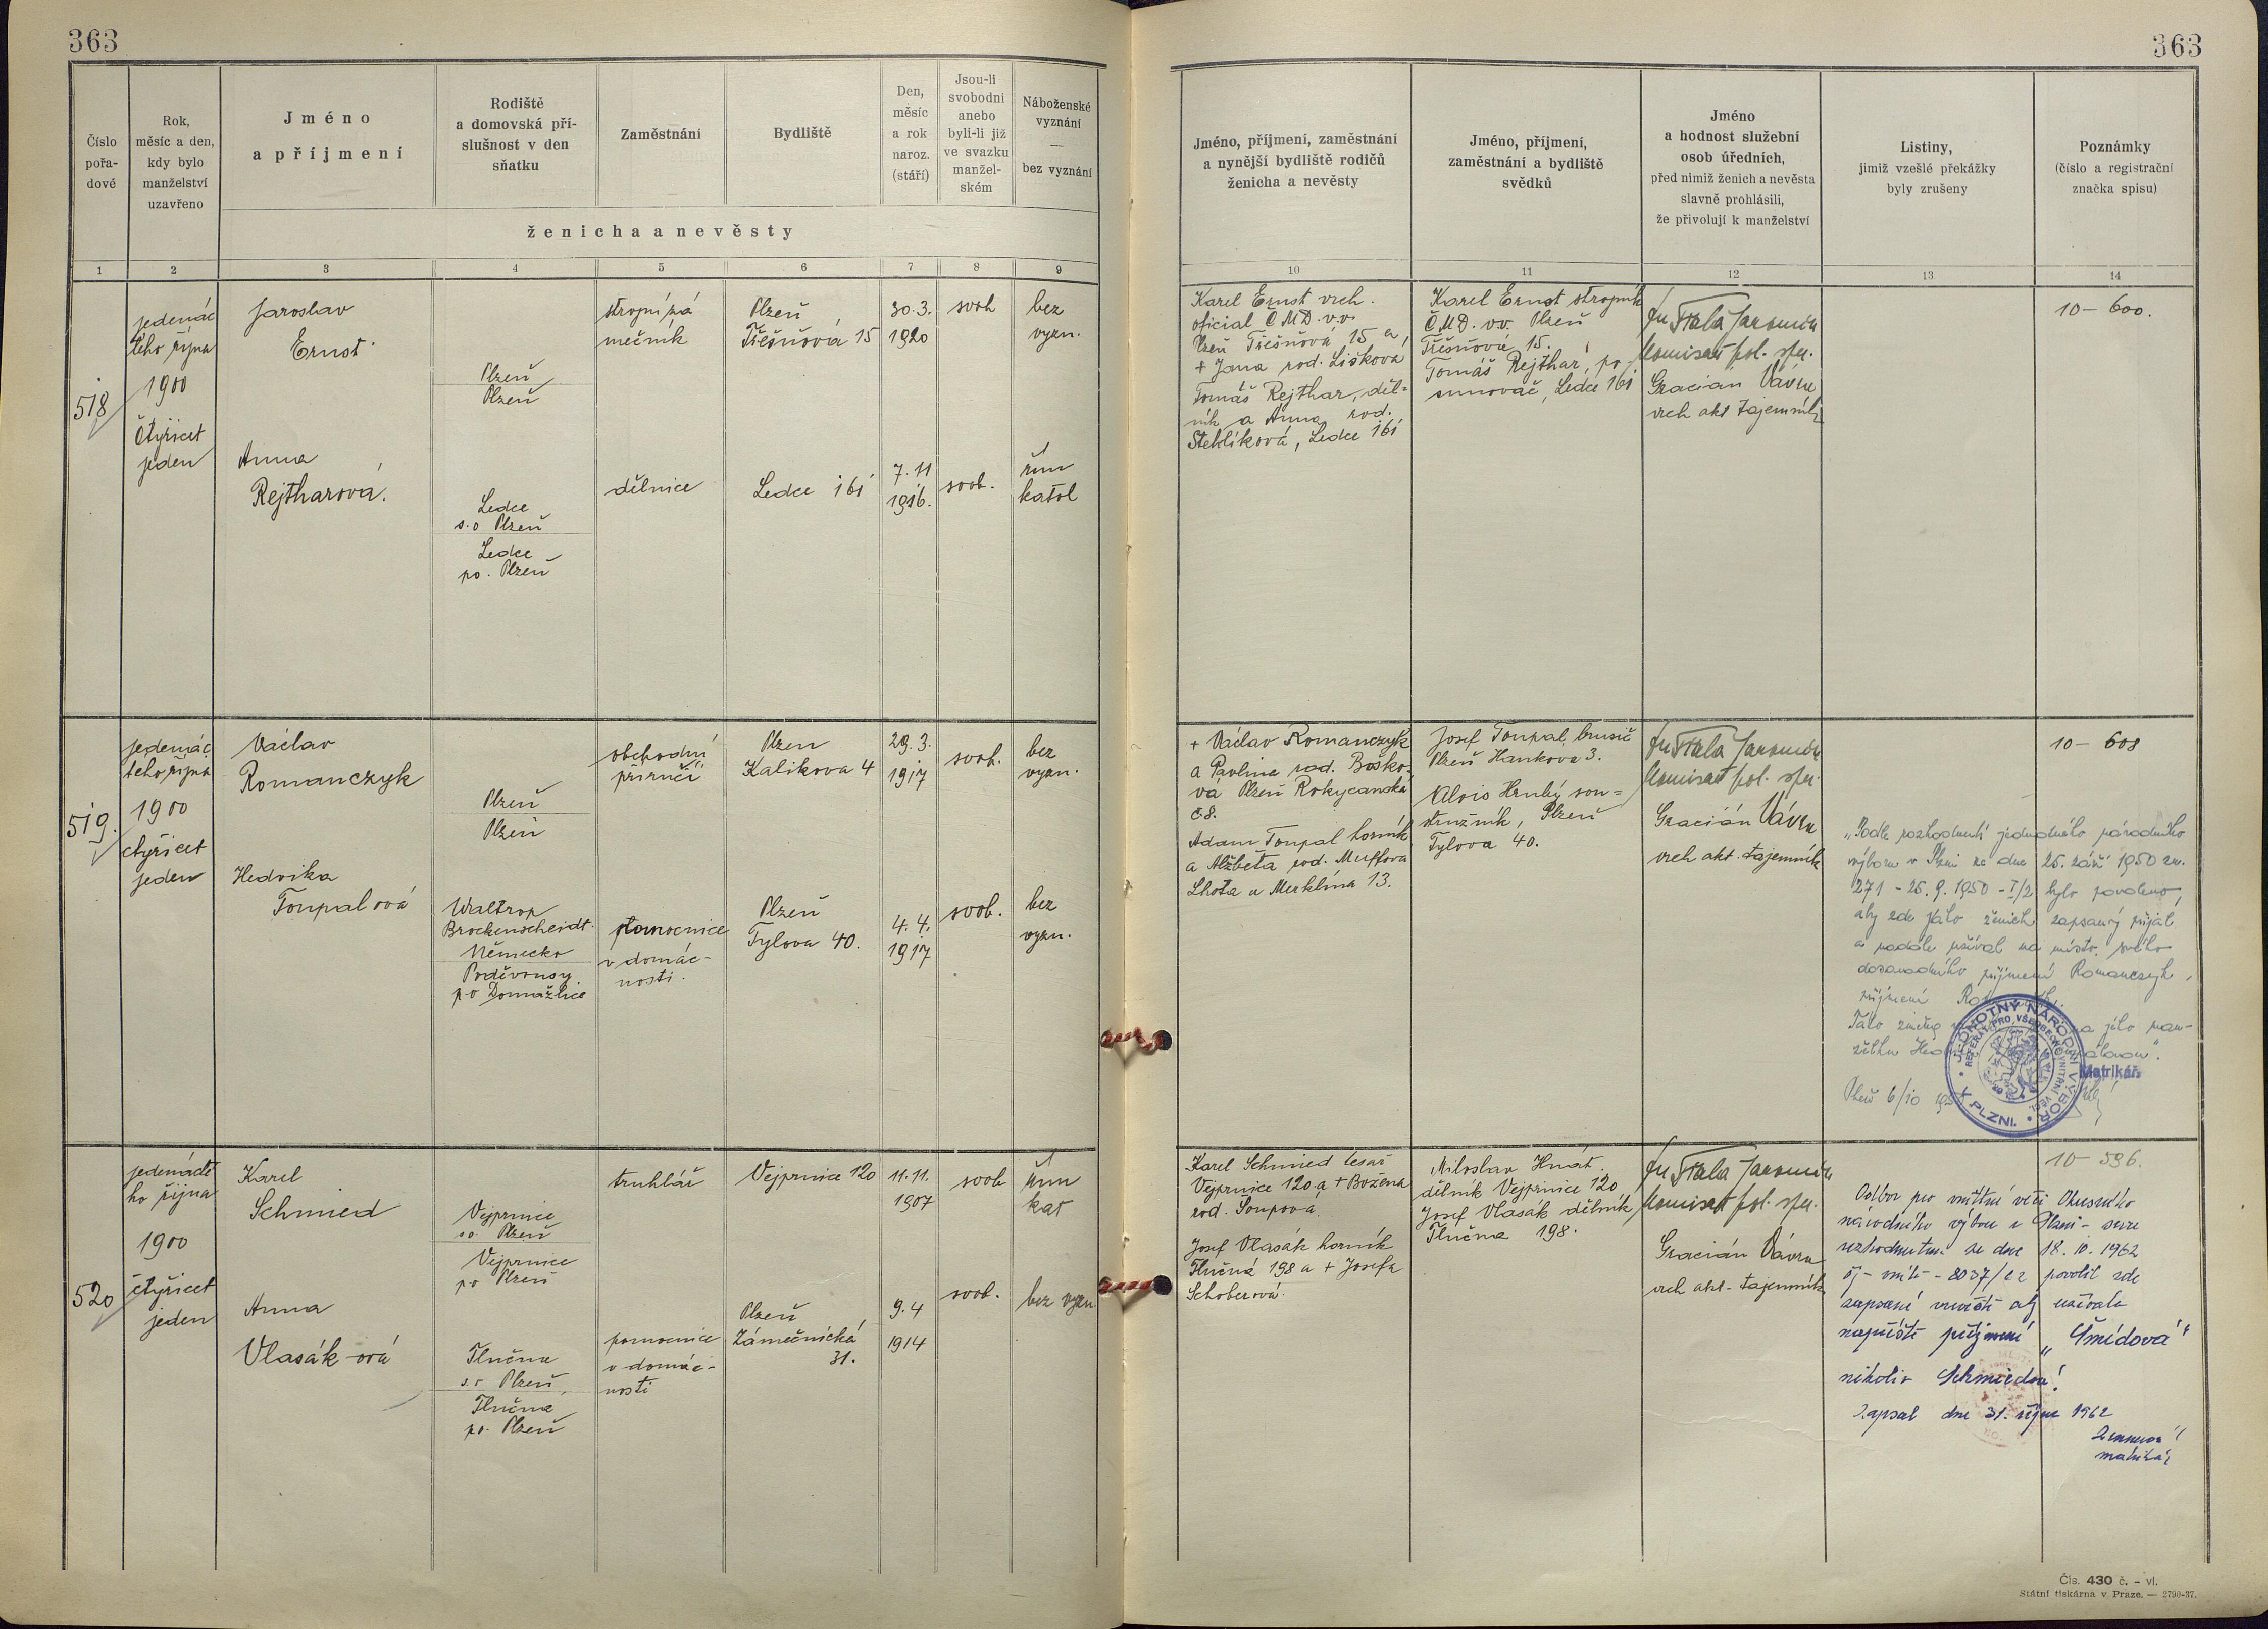 363
363
Číslo
pořa-
dové
Rok,
měsíc a den,
kdy bylo
manželství
uzavřeno
Jméno
a příjmení
Rodiště
a domovská pří-
slušnost v den
sňatku
Zaměstnání
Bydliště
Den,
měsíc
a rok
naroz.
(stáří)
Jsou-li
svobodni
anebo
byli-li již
ve svazku
manžel-
ském
Náboženské
vyznání
—
bez vyznání
ženicha a nevěsty
Jméno, příjmení, zaměstnání
a nynější bydliště rodičů
ženicha a nevěsty
Jméno, příjmení,
zaměstnání a bydliště
svědků
Jméno
a hodnost služební
osob úředních,
před nimiž ženich a nevěsta
slavně prohlásili,
že přivolují k manželství
Listiny,
jimiž vzešlé překážky
byly zrušeny
Poznámky
(číslo a registrační
značka spisu)
1 2 3 4 5 6 7 8 9
10 11 12 13 14
518
jedenác
tého října
1900
čtyřicet
jeden
Jaroslav
Ernst
Plzeň
Plzeň
strojní zá
mečník
Plzeň
Třešňová 15
30.3.
1920
svob
bez
vyzn.
Anna
Rejtharová.
Ledce
s.o Plzeň
Ledce
po. Plzeň
dělnice
Ledce 161
7.11
1916.
svob.
řím
katol
Karel Ernst vrch.
oficial ČMD. v.v.
Plzeň Třešňová 15 a
+ Jana rod. Lišková
Tomáš Rejthar, děl-
ník a Anna rod.
Stehlíková, Ledce 161
Karel Ernst strojník
ČMD. v.v. Plzeň
Třešňová 15.
Tomáš Rejthar, po
sunovač, Ledce 161
Fiala Jaromír
komisař pol. spr.
Gracian Vávra
vrch akt tajemník
10 – 600.
519.
jedenác
tého října
1900
čtyřicet
jeden
Václav
Romanczyk
Plzeň
Plzeň
obchodní
příručí
Plzeň
Kalikova 4
29.3.
1917
svob.
bez
vyzn.
Hedvika
Toupalová
Waltrop
Brockenscheidt
Německo
Poděvousy
po Domažlice
pomocnice
v domác-
nosti.
Plzeň
Tylova 40.
4.4.
1917
svob.
bez
vyzn.
+ Václav Romanczyk
a Pavlina rod. Boško-
vá Plzeň Rokycanská
č8.
Adam Toupal horník
a Alžběta rod. Muffova
Lhota u Merklína 13.
Josef Toupal, brusič
Plzeň Hankova 3.
Alois Hrubý sou-
stružník, Plzeň
Tylova 40.
Fiala Jaromír
komisař pol. spr.
Gracián Vávra
vrch akt. tajemník
10 – 608
„Podle rozhodnutí jednotného národního
výboru v Plzni ze dne 25. září 1950 zn.
271 – 25.9.1950 – I/2 bylo povoleno,
aby zde jako ženich zapsaný přijal
a nadále užíval na místo svého
dosavadního příjmení Romanczyk,
příjmení
Tato změna
Plzeň 6/10
JEDNOTNÝ NÁRODNÍ VÝBOR
V PLZNI.
REFERÁT PRO VŠEOBECNÉ VNITŘNÍ VĚCI
Matrikář:
520
jedenácté
ho října
1900
čtyřicet
jeden
Karel
Schmied
Vejprnice
so. Plzeň
Vejprnice
po Plzeň
truhlář
Vejprnice 120
11.11.
1907
svob
řím
kat
Anna
Vlasák-ová
Tlučna
s.o Plzeň,
Tlučna
po. Plzeň
pomocnice
v domác-
nosti
Plzeň
Zámečnická
31.
9.4
1914
svob.
bez vyzn
Karel Schmied tesař
Vejprnice 120 a + Božena
rod. Soupová.
Josef Vlasák horník
Tlučná 198 a + Josefa
Schoberová.
Miloslav Hnát.
dělník Vejprnice 120
Josef Vlasák dělník
Tlučna 198.
Fiala Jaromír
komisař pol. spr.
Gracián Vávra
vrch akt. tajemník
10 – 596.
Odbor pro vnitřní věci Okresního
národního výboru v Plzni – sever
rozhodnutím ze dne 18. 10. 1962
povolil zde
zapsané nevěstě aby užívala
napříště příjmení „Šmídová"
nikoliv Schmiedová!
Zapsal dne 31. října 1962
matrikář
Čís. 430 č. – vl.
Státní tiskárna v Praze. — 2790-37.